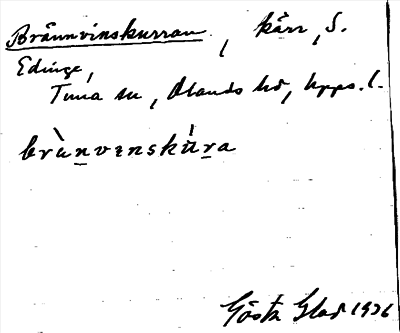 Brännvinskurran, kärr, S.
Edinge,
Tuna sn, Olands hd, Upps. l.
brùn̲vɛnskúr̲a
Gösta Glad 1926